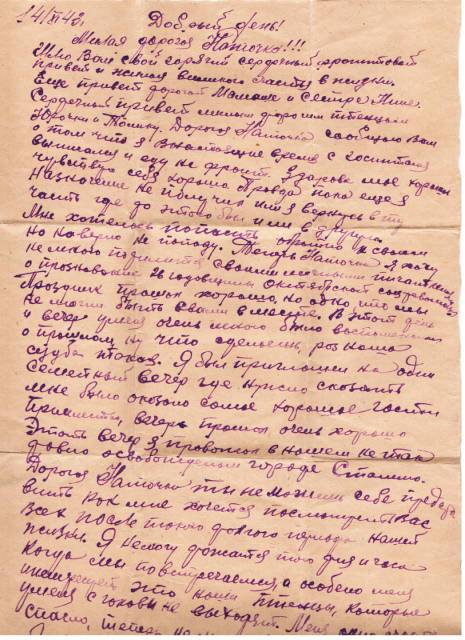 14/XI 43г. Добрый день!
Милая дорогая Наточка!!!
Шлю Вам свой горячий сердечный фронтовой
привет и желаю великого счастья в жизни.
Еще привет дорогой Мамаше и Сестре Нине.
Сердечный привет милым дорогим птенцам
Юрочки и Толику. Дорогая Наточка сообщаю Вам
о том что я в настоящие время с госпиталя
выписался и еду на фронт. Здоровье мое хорошее
чувствую себя хорошо правда пока еще я
назначение не получил или я вернусь в ту
часть где до этого был или в другую
Мне хотелось попасть обратно к своим
но наверно не попаду. Теперь Наточка я хочу
не много поделится своими
о праздновании 26 годовщины Октябрьской
Праздник прошел хорошо, но одно что мы
не могли быть своими вместе. В этот день
и вечер у меня очень много было воспоминаний
о прошлом ну что сделаешь раз наша
судьба такова. Я был приглашен на один
семейный вечер где нужно сказать
мне было оказано самое хорошее гости
приимство, вечер прошел очень хорошо
Этот вечер я провожал в нашем не так
давно освобожденом городе Сталино.
Дорогая Наточка ты не можешь себе предста
вить как мне хочется посмотреть Вас
всех после такого долгого периода нашей
жизни. Я не могу дождатся того дня и часа
когда мы повстречаемся, а особено меня
интересует это наши птенцы, которые
у меня с головы не выходят. Меня
спасло, теперь